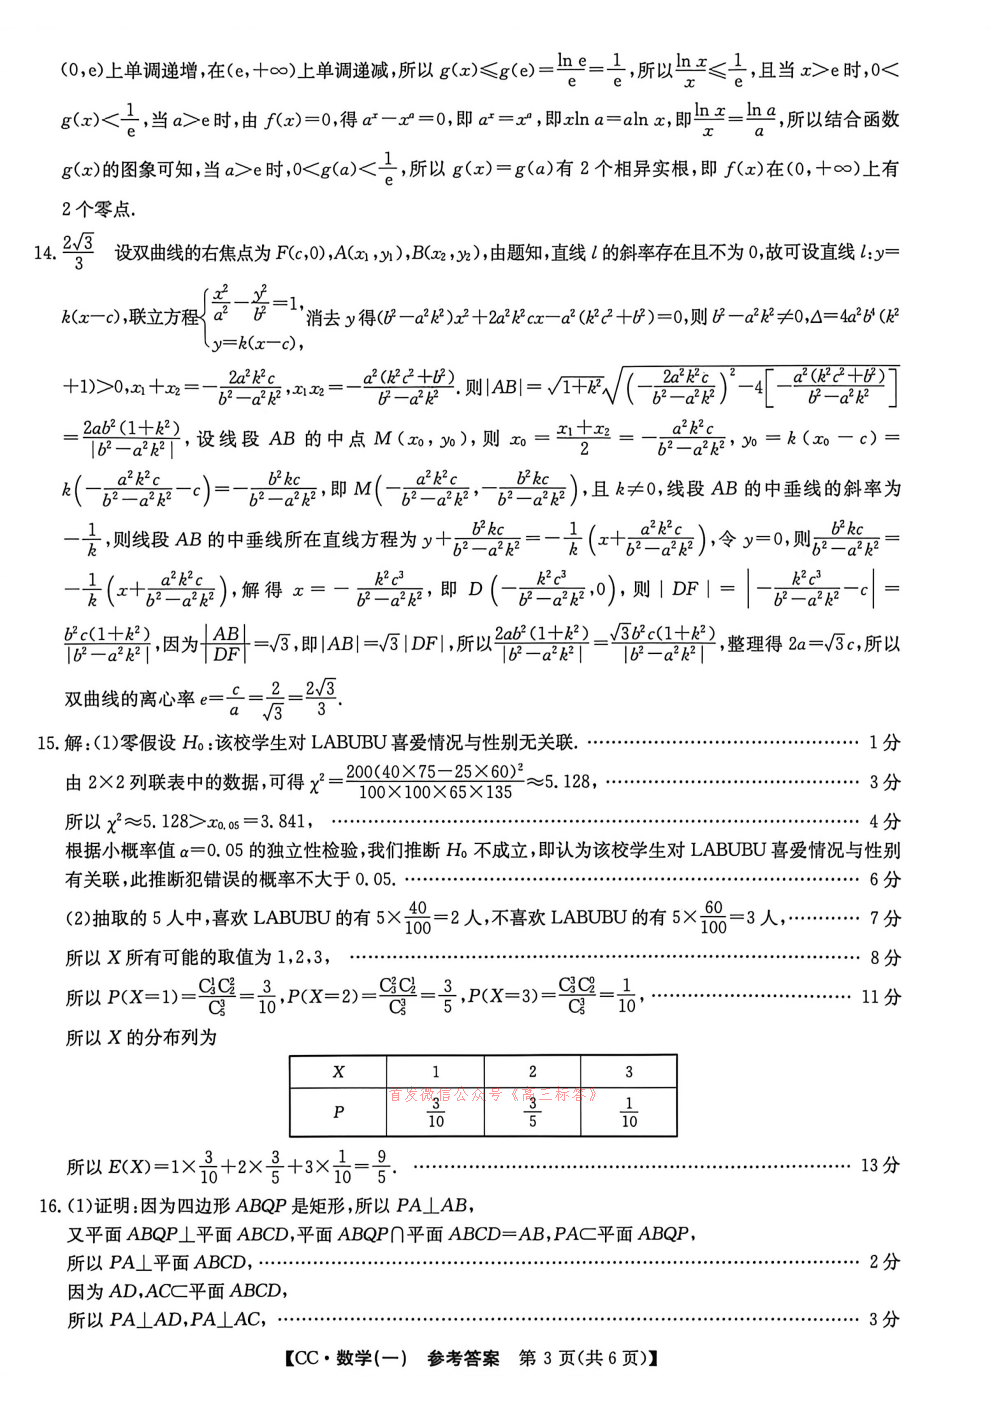 (0,e)上单调递增,在(e,+∞)上单调递减,所以 g(x)≤g(e)=\frac{ln e}{e}=\frac{1}{e},所以\frac{ln x}{x}≤\frac{1}{e},且当 x>e 时,0<
g(x)<\frac{1}{e},当 a>e 时,由 f(x)=0,得 a^x-x^a=0,即 a^x=x^a,即xln a=aln x,即\frac{ln x}{x}=\frac{ln a}{a},所以结合函数
g(x)的图象可知,当 a>e 时,0<g(a)<\frac{1}{e},所以 g(x)=g(a)有 2 个相异实根,即 f(x)在(0,+∞)上有
2 个零点.
14. \frac{2√3}{3} 设双曲线的右焦点为 F(c,0),A(x₁,y₁),B(x₂,y₂),由题知,直线 l 的斜率存在且不为 0,故可设直线 l:y=
k(x-c),联立方程{\frac{x²}{a²}-\frac{y²}{b²}=1, y=k(x-c),消去 y 得(b²-a²k²)x²+2a²k²cx-a²(k²c²+b²)=0,则 b²-a²k²≠0,Δ=4a²b⁴(k²
+1)>0,x₁+x₂=-\frac{2a²k²c}{b²-a²k²},x₁x₂=-\frac{a²(k²c²+b²)}{b²-a²k²}.则|AB|=√(1+k²)√((-\frac{2a²k²c}{b²-a²k²})²-4[-\frac{a²(k²c²+b²)}{b²-a²k²}])
=\frac{2ab²(1+k²)}{|b²-a²k²|},设线段 AB 的中点 M(x₀,y₀),则 x₀=\frac{x₁+x₂}{2}=-\frac{a²k²c}{b²-a²k²},y₀=k(x₀-c)=
k(-\frac{a²k²c}{b²-a²k²}-c)=-\frac{b²kc}{b²-a²k²},即 M(-\frac{a²k²c}{b²-a²k²},-\frac{b²kc}{b²-a²k²}),且 k≠0,线段 AB 的中垂线的斜率为
-\frac{1}{k},则线段 AB 的中垂线所在直线方程为 y+\frac{b²kc}{b²-a²k²}=-\frac{1}{k}(x+\frac{a²k²c}{b²-a²k²}),令 y=0,则\frac{b²kc}{b²-a²k²}=
-\frac{1}{k}(x+\frac{a²k²c}{b²-a²k²}),解得 x=-\frac{k²c³}{b²-a²k²},即 D(-\frac{k²c³}{b²-a²k²},0),则|DF|=|-\frac{k²c³}{b²-a²k²}-c|=
\frac{b²c(1+k²)}{|b²-a²k²|},因为\frac{|AB|}{|DF|}=√3,即|AB|=√3|DF|,所以\frac{2ab²(1+k²)}{|b²-a²k²|}=\frac{√3b²c(1+k²)}{|b²-a²k²|},整理得 2a=√3c,所以
双曲线的离心率 e=\frac{c}{a}=\frac{2}{√3}=\frac{2√3}{3}.
15. 解:(1)零假设 H₀:该校学生对 LABUBU 喜爱情况与性别无关联. …… 1 分
由 2×2 列联表中的数据,可得 χ²=\frac{200(40×75-25×60)²}{100×100×65×135}≈5.128, …… 3 分
所以 χ²≈5.128>x₀.₀₅=3.841, …… 4 分
根据小概率值 α=0.05 的独立性检验,我们推断 H₀ 不成立,即认为该校学生对 LABUBU 喜爱情况与性别
有关联,此推断犯错误的概率不大于 0.05. …… 6 分
(2)抽取的 5 人中,喜欢 LABUBU 的有 5×\frac{40}{100}=2 人,不喜欢 LABUBU 的有 5×\frac{60}{100}=3 人, …… 7 分
所以 X 所有可能的取值为 1,2,3, …… 8 分
所以 P(X=1)=\frac{C₃¹C₂²}{C₅³}=\frac{3}{10},P(X=2)=\frac{C₃²C₂¹}{C₅³}=\frac{3}{5},P(X=3)=\frac{C₃³C₂⁰}{C₅³}=\frac{1}{10}, …… 11 分
所以 X 的分布列为
X 1 2 3
首发微信公众号《高三标答》
P \frac{3}{10} \frac{3}{5} \frac{1}{10}
所以 E(X)=1×\frac{3}{10}+2×\frac{3}{5}+3×\frac{1}{10}=\frac{9}{5}. …… 13 分
16. (1)证明:因为四边形 ABQP 是矩形,所以 PA⊥AB,
又平面 ABQP⊥平面 ABCD,平面 ABQP∩平面 ABCD=AB,PA⊂平面 ABQP,
所以 PA⊥平面 ABCD, …… 2 分
因为 AD,AC⊂平面 ABCD,
所以 PA⊥AD,PA⊥AC, …… 3 分
【CC·数学(一) 参考答案 第 3 页(共 6 页)】